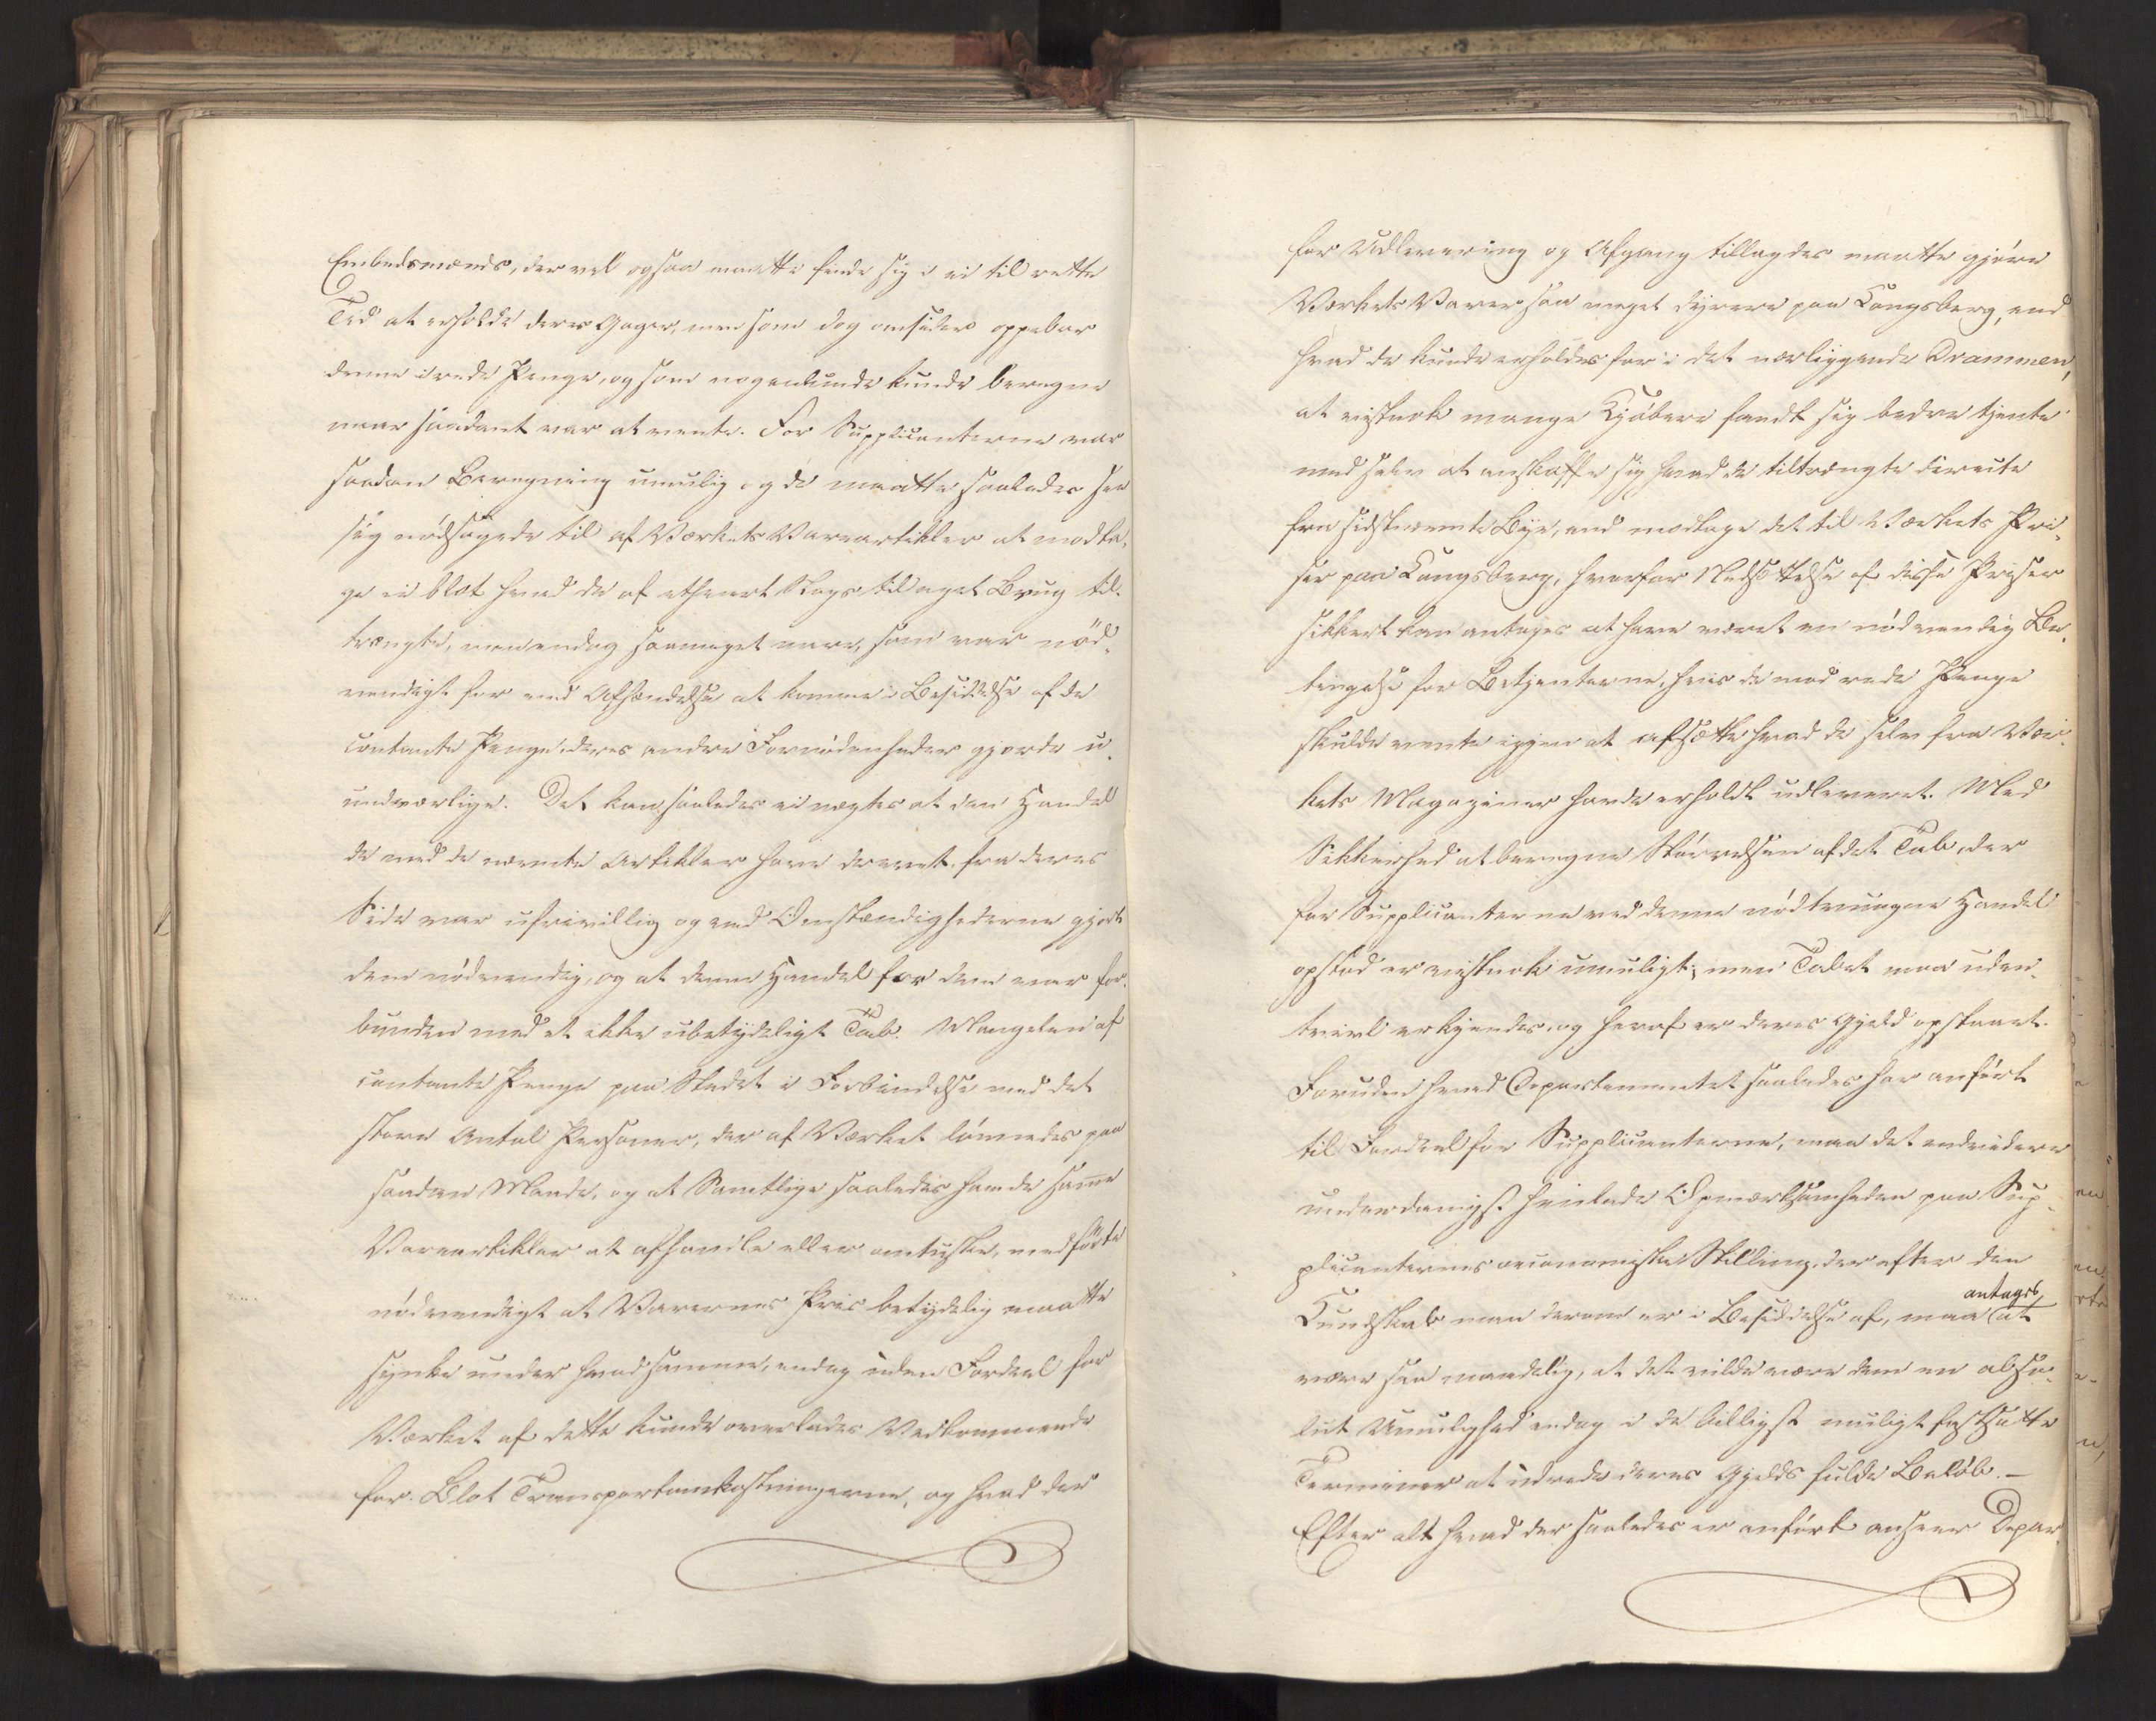 Embedsmænds, der vel ogsaa maatte finde sig i ei til rette
Tid at erholde deres Gager, men som dog omsider oppebar
denne i rede Penge, og som nogenlunde kunde beregne
naar saadant var at vente. For Supplicanterne var
saadan Beregning umulig og de maatte saaledes see
sig nödsagede til af Værkets Vareartikler at modta-
ge ei blot hvad de af ethvert Slags til eget Brug til-
trængte, men endog saameget mere, som var nöd-
vendigt for ved Afhændelse at komme i Besiddelse af de
contante Penge, deres andre Fornödenheder gjorde u-
undværlige. Det kan saaledes ei nægtes at den Handel
de med de nævnte Artikler have drevet fra deres
Side var ufrivillig og ved Omstændighederne gjort
dem nödvendig, og at denne Handel for dem var for-
bunden med et ikke ubetydeligt Tab. Mangelen af
contante Penge paa Stedet i Forbindelse med det
store Antal Personer, der af Værket lönnedes paa
saadan Maade, og at Samtlige saaledes havde samme
Vareartikler at afhandle eller omtuske, medförte
nödvendigt at Varernes Pris betydelig maatte
synke under hvad samme, endog uden Fordeel for
Værket af dette kunde overlades Vedkommende
for. Blot Transportomkostningerne, og hvad der
for Udlevering og Afgang tillagdes maatte gjöre
Værkets Varer saa meget dyrere paa Kongsberg, end
hvad de kunde erholdes for i det nærliggende Drammen,
at vistnok mange Kjöbere fandt sig bedre tjente
med selv at anskaffe sig hvad de tiltrængte directe
fra sidstnævnte Bye, end modtage det til Værkets Pri-
ser paa Kongsberg, hvorfor Nedsættelse af disse Priser
sikkert kan antages at have været en nödvendig Be-
tingelse for Betjenterne, hvis de mod rede Penge
skulde vente igjen at afsætte hvad de selv fra Vær-
kets Magaziner havde erholdt udleveret. Med
Sikkerhed at beregne Störrelsen af det Tab, der
for Supplicanterne ved denne nödtvungne Handel
opstod er vistnok umuligt; men Tabet maa uden-
tvivl erkjendes, og heraf er deres Gjeld opstaaet.
Foruden hvad Departementet saaledes har anfört
til Fordeel for Supplicanterne, maa det endvidere
underdanigst henlede Opmærksomheden paa Sup-
plicanternes oeconomiske Stilling, der efter den
Kundskab man derom er i Besiddelse af, maa antages, at
være saa maadelig, at det vilde være dem en abso-
lut Umulighed endog i de billigst muligt fastsatte
Terminer at udrede deres Gjelds fulde Belöb. -
Efter alt hvad der saaledes er anfört anseer Depar-